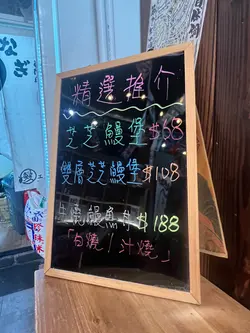 なぎ
精選推介
芝芝鰻堡$68
雙層芝芝鰻堡$108
生燒鰻魚$188
「白燒/汁燒」